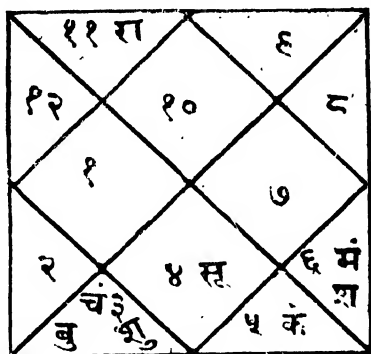 ११ रा ९
१२ १० ८
१ ७
२ ४ सू ६ मं
चं ३ श
बु शु ५ के